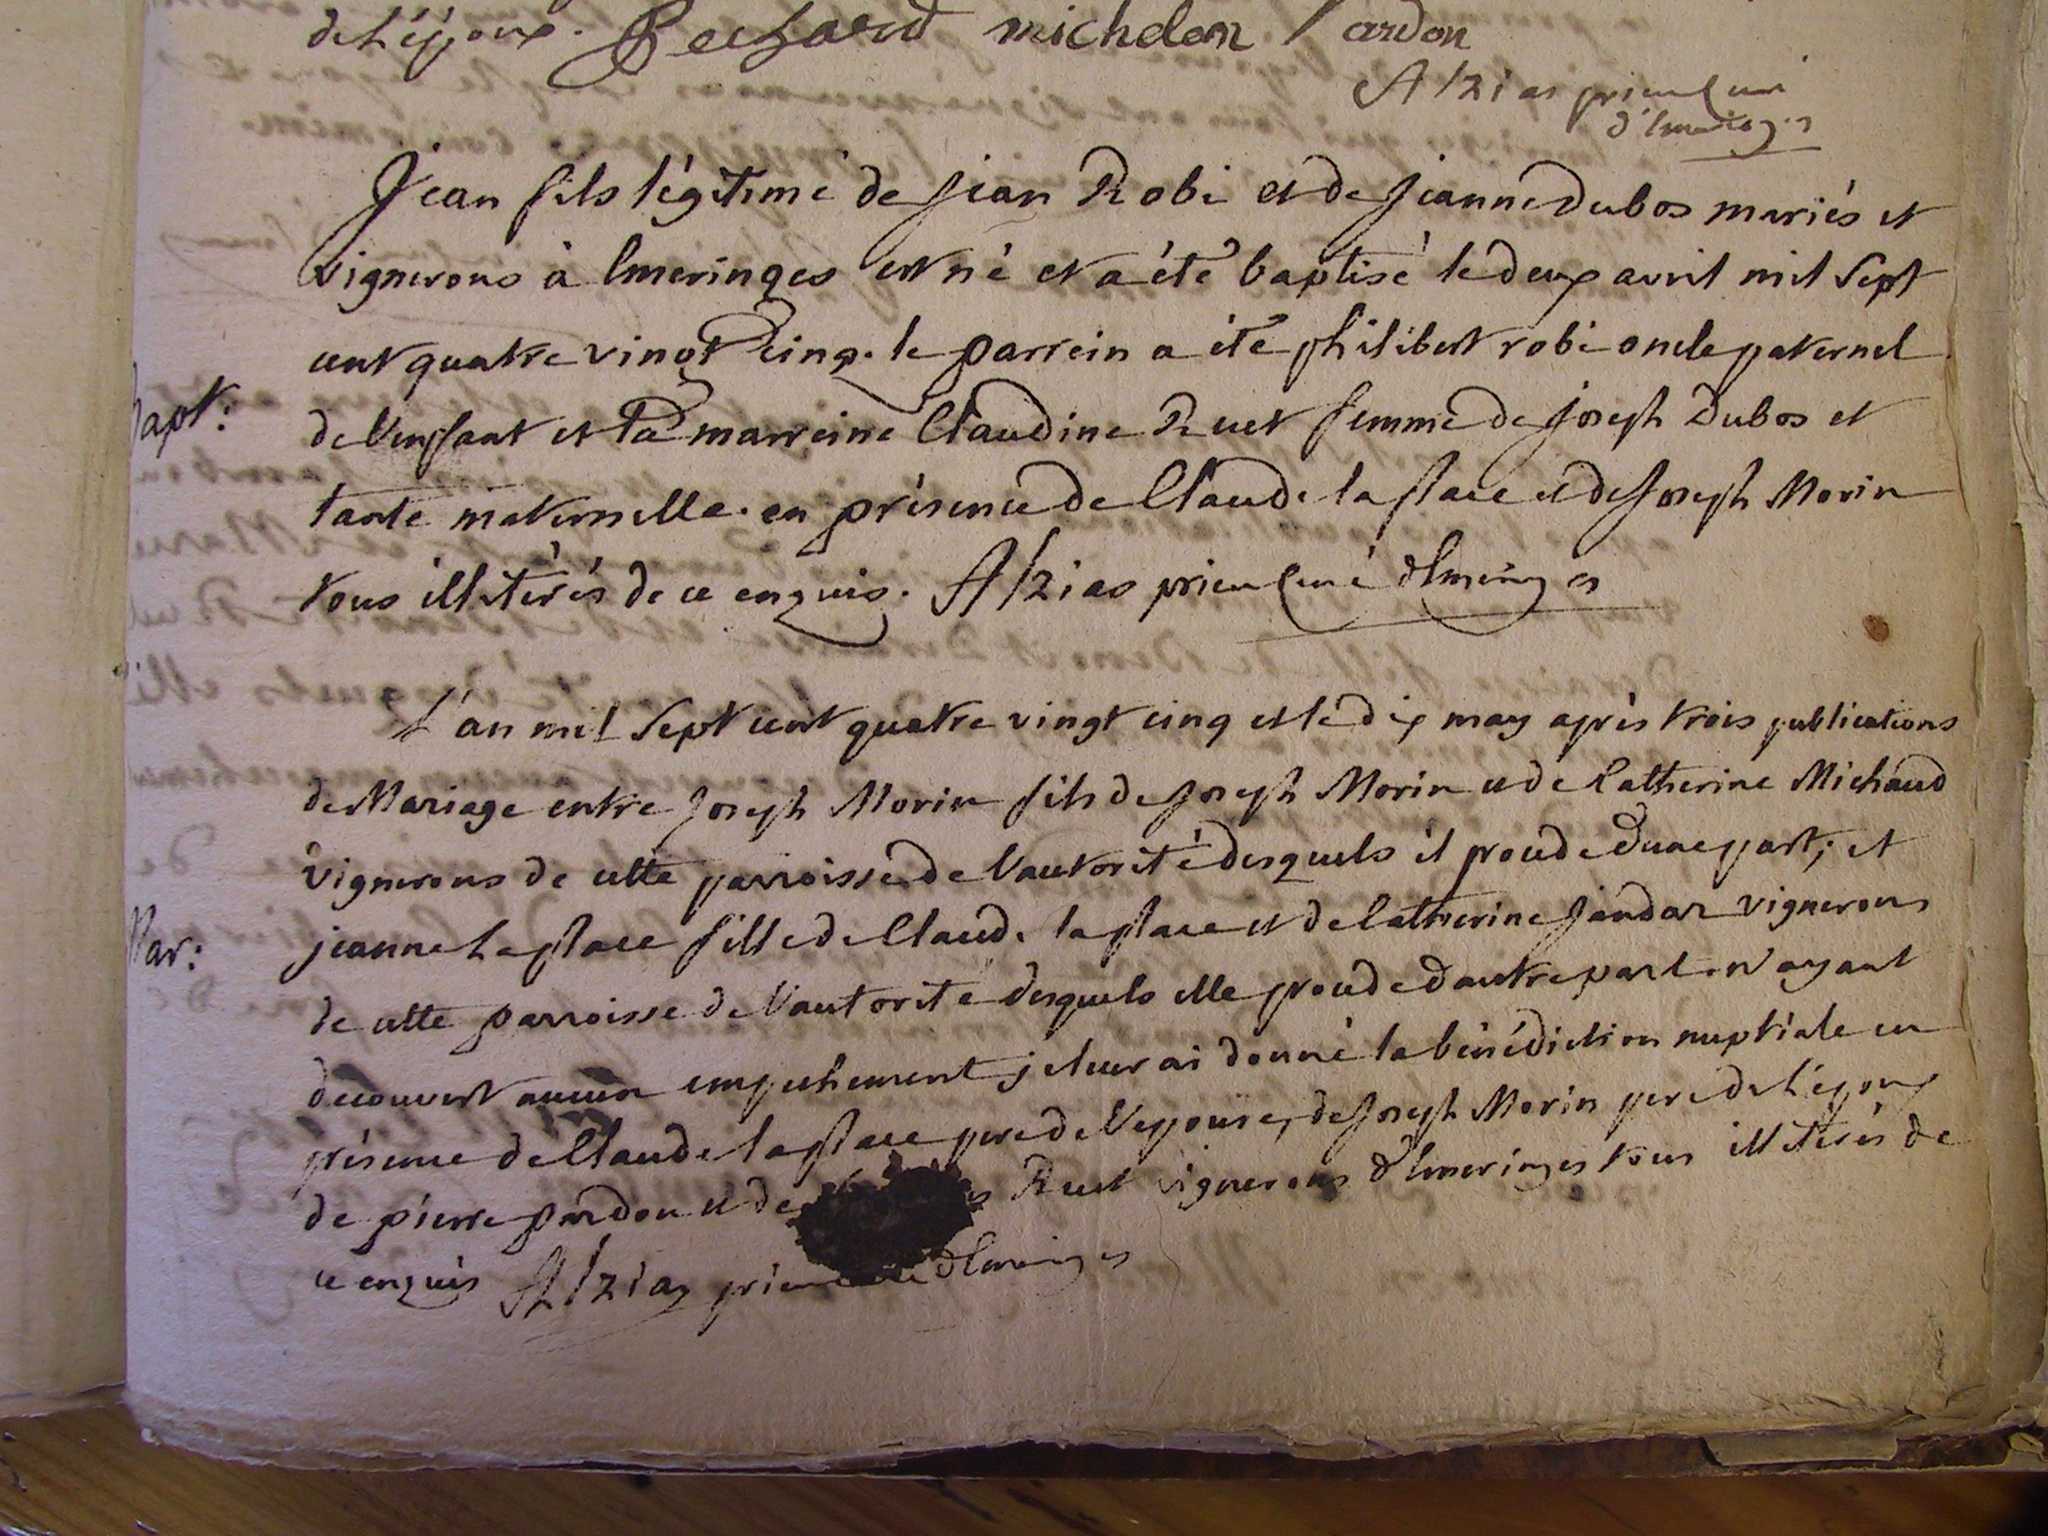 de l'époux. Bechard michelon Pardon
Alzias prieur curé
d'Emeringes
Jean fils légitime de Jean Robé et de Jeanne Dubos mariés et
vignerons à Emeringes est né et a été baptisé le deux avril mil sept
cent quatre vingt cinq. le parrein a été philibert robé oncle paternel
de l'enfant et la marreine Claudine Ruet femme de joseph Dubos et
tante maternelle. en présence de Claude laplace et de Joseph Morin
tous illitérés de ce enquis. Alzias prieur curé d'Emeringes
Bapt:
L'an mil sept cent quatre vingt cinq et le dix may après trois publications
de Mariage entre Joseph Morin fils de Joseph Morin et de Catherine Michaud
vignerons de cette parroisse de l'autorité desquels il procede d'une part; et
jeanne Laplace fille de Claude laplace et de Catherine Jandar vignerons
de cette parroisse de l'autorité desquels elle procede d'autre part. n'ayant
decouvert aucun empechement je leur ai donné la bénédiction nuptiale en
présence de Claude laplace pere de l'epouse, de Joseph Morin pere de l'epoux
de pierre pardon et de Ruet vignerons d'Emeringes tous illiterés de
ce enquis Alzias prieur curé d'Emeringes
Mar: